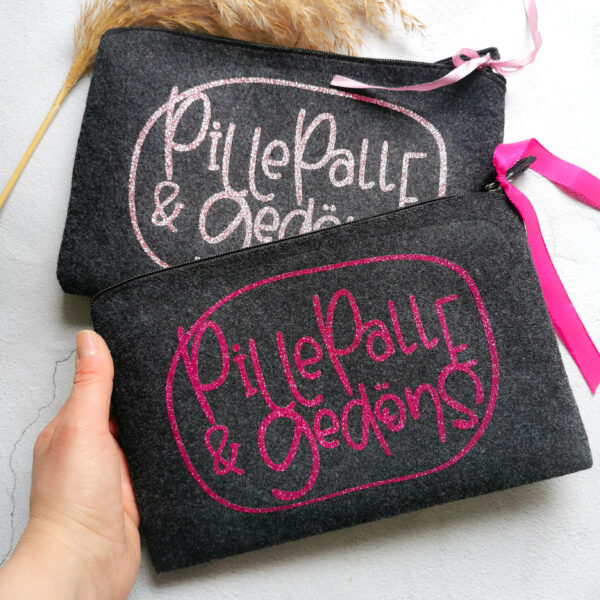 PillePalle
& gedöns
PillePalle
& gedöns